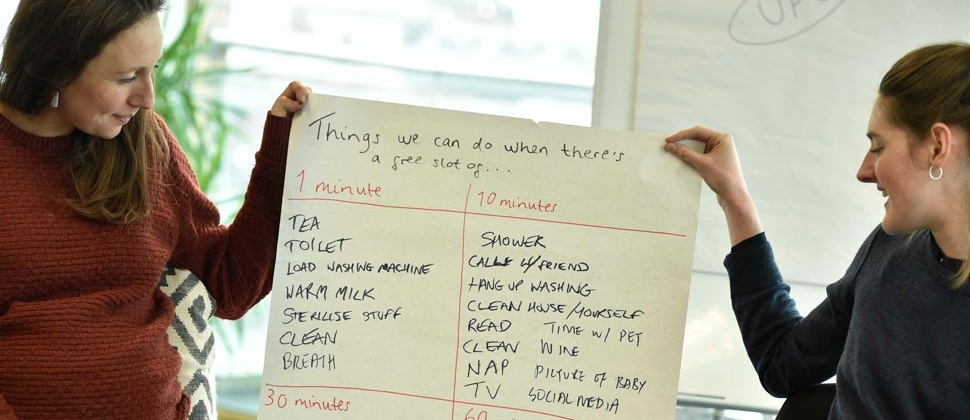 Things we can do when there's
a free slot of...
1 minute
TEA
TOILET
LOAD WASHING MACHINE
WARM MILK
STERILISE STUFF
CLEAN
BREATH
10 minutes
SHOWER
CALL W/FRIEND
HANG UP WASHING
CLEAN HOUSE/YOURSELF
READ TIME W/ PET
CLEAN WINE
NAP PICTURE OF BABY
TV SOCIAL MEDIA
30 minutes
60